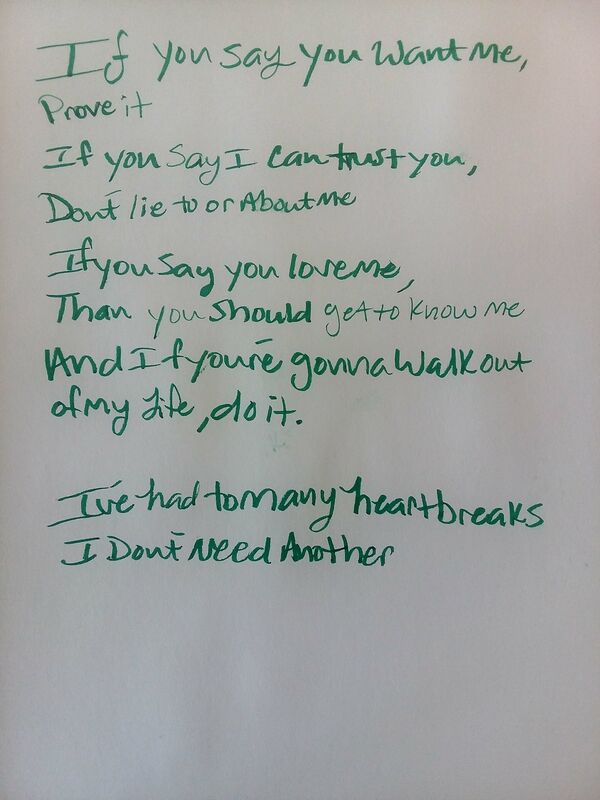 If you say you want me,
Prove it
If you say I can trust you,
Don't lie to or About me
If you say you love me,
Than you should get to know me
And If you're gonna walk out
of my life, do it.
I've had to many heartbreaks
I Don't Need Another